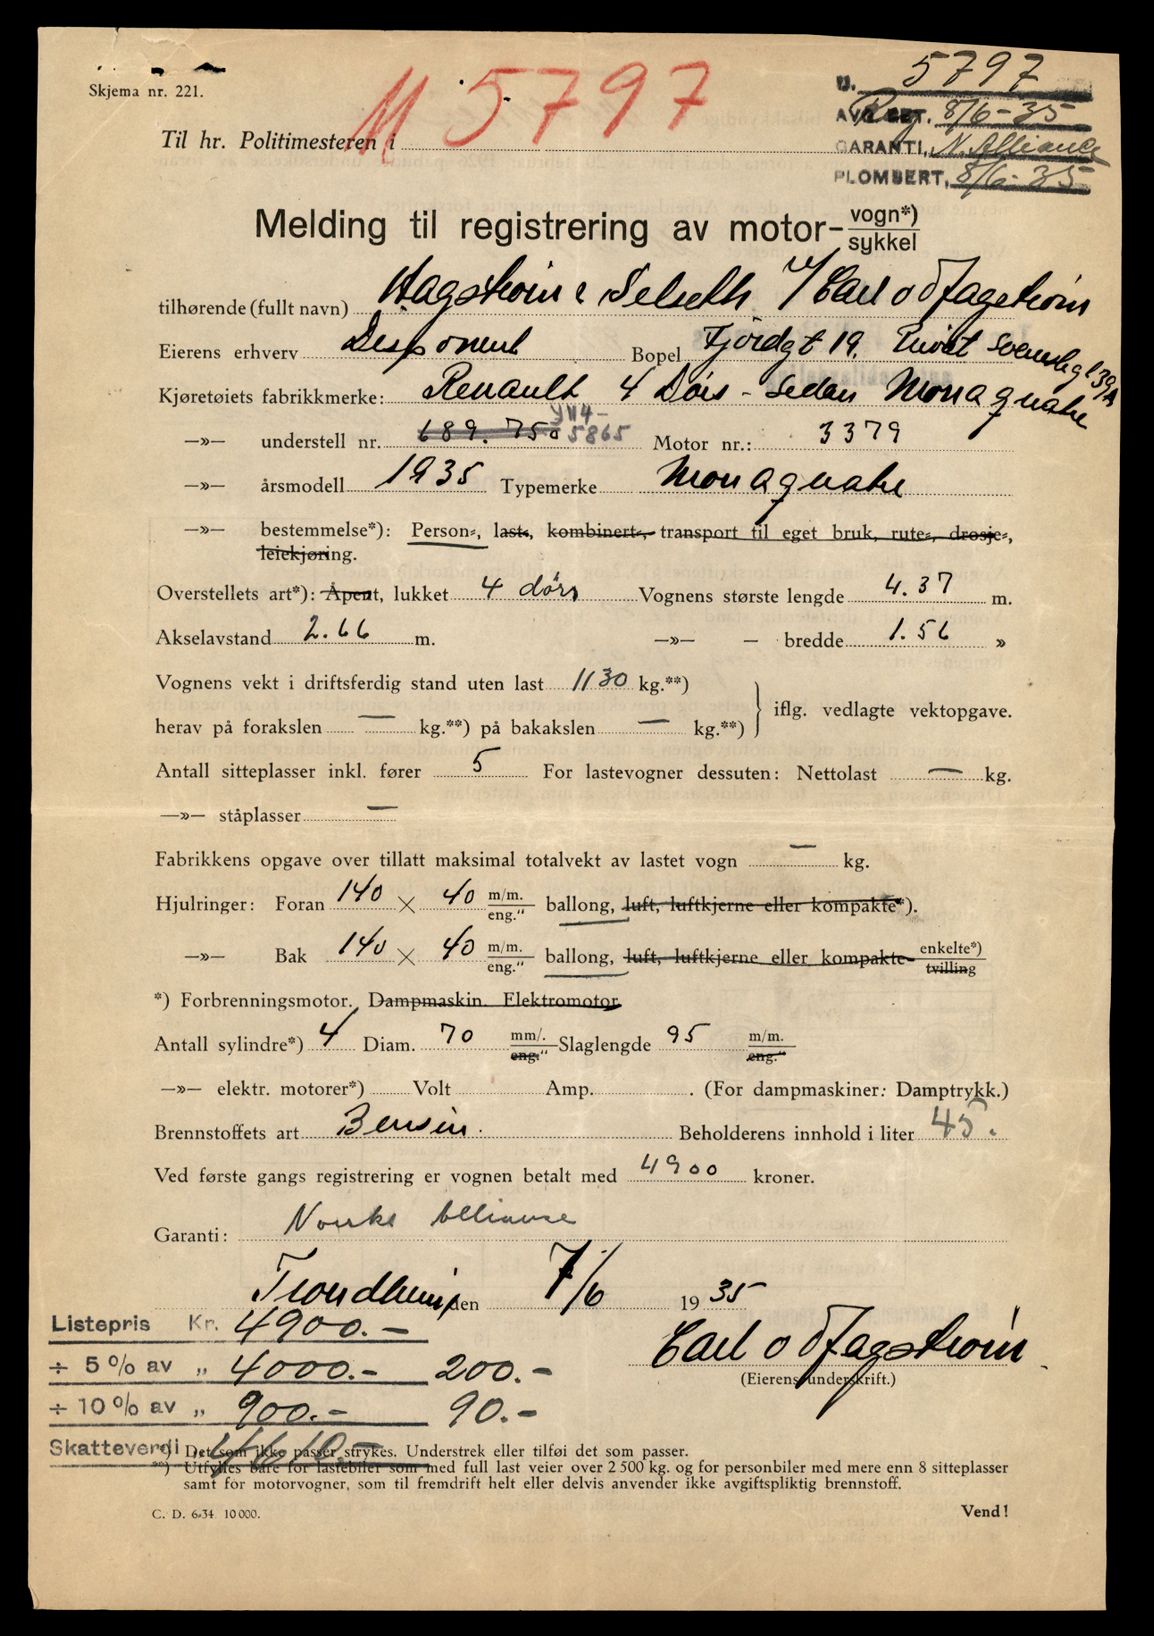 Skjema nr. 221.
M 5797
U. 5797
AVG. BET. Reg. 8/6-35
GARANTI, N. Alliance
PLOMBERT, 8/6-35
Til hr. Politimesteren i
Melding til registrering av motor- vogn*) / sykkel
tilhørende (fullt navn) Hagstrøm & Selseth v/ Carl O Hagstrøm
Eierens erhverv Disponent Bopel Fjordgt 19. Privat
Kjøretøiets fabrikkmerke: Renault 4 Dørs - Sedan Monaquatre
—»— understell nr. 689.750 YN4- 5865 Motor nr.: 3379
—»— årsmodell 1935 Typemerke Monaquatre
—»— bestemmelse*): Person-, laste-, kombinert-, transport til eget bruk, rute-, drosje-,
leiekjøring.
Overstellets art*): Åpent, lukket 4 dørs Vognens største lengde 4.37 m.
Akselavstand 2.66 m. —»— — bredde 1.56 »
Vognens vekt i driftsferdig stand uten last 1130 kg.**)
herav på forakslen — kg.**) på bakakslen — kg.**) } iflg. vedlagte vektopgave.
Antall sitteplasser inkl. fører 5 For lastevogner dessuten: Nettolast — kg.
—»— ståplasser —
Fabrikkens opgave over tillatt maksimal totalvekt av lastet vogn — kg.
Hjulringer: Foran 140 × 40 m/m. / eng." ballong, luft, luftkjerne eller kompakte*).
—»— Bak 140 × 40 m/m. / eng." ballong, luft, luftkjerne eller kompakte- enkelte*) / tvilling
*) Forbrenningsmotor. Dampmaskin. Elektromotor
Antall sylindre*) 4 Diam. 70 mm/. / eng." Slaglengde 95 m/m. / eng."
—»— elektr. motorer*) Volt Amp. . (For dampmaskiner: Damptrykk.)
Brennstoffets art Bensin. Beholderens innhold i liter 45.
Ved første gangs registrering er vognen betalt med 4900 kroner.
Garanti: Norske Alliance
Trondheim den 7/6 19 35
Listepris Kr. 4900.-
Carl O Hagstrøm
÷ 5 % av „ 4000.- 200.-
(Eierens underskrift.)
÷ 10 % av „ 900.- 90.-
Skatteverdi 4610.-
*) Det som ikke passer strykes. Understrek eller tilføi det som passer.
**) Utfylles bare for lastebiler som med full last veier over 2 500 kg. og for personbiler med mere enn 8 sitteplasser
samt for motorvogner, som til fremdrift helt eller delvis anvender ikke avgiftspliktig brennstoff.
C. D. 6-34 10 000.
Vend!